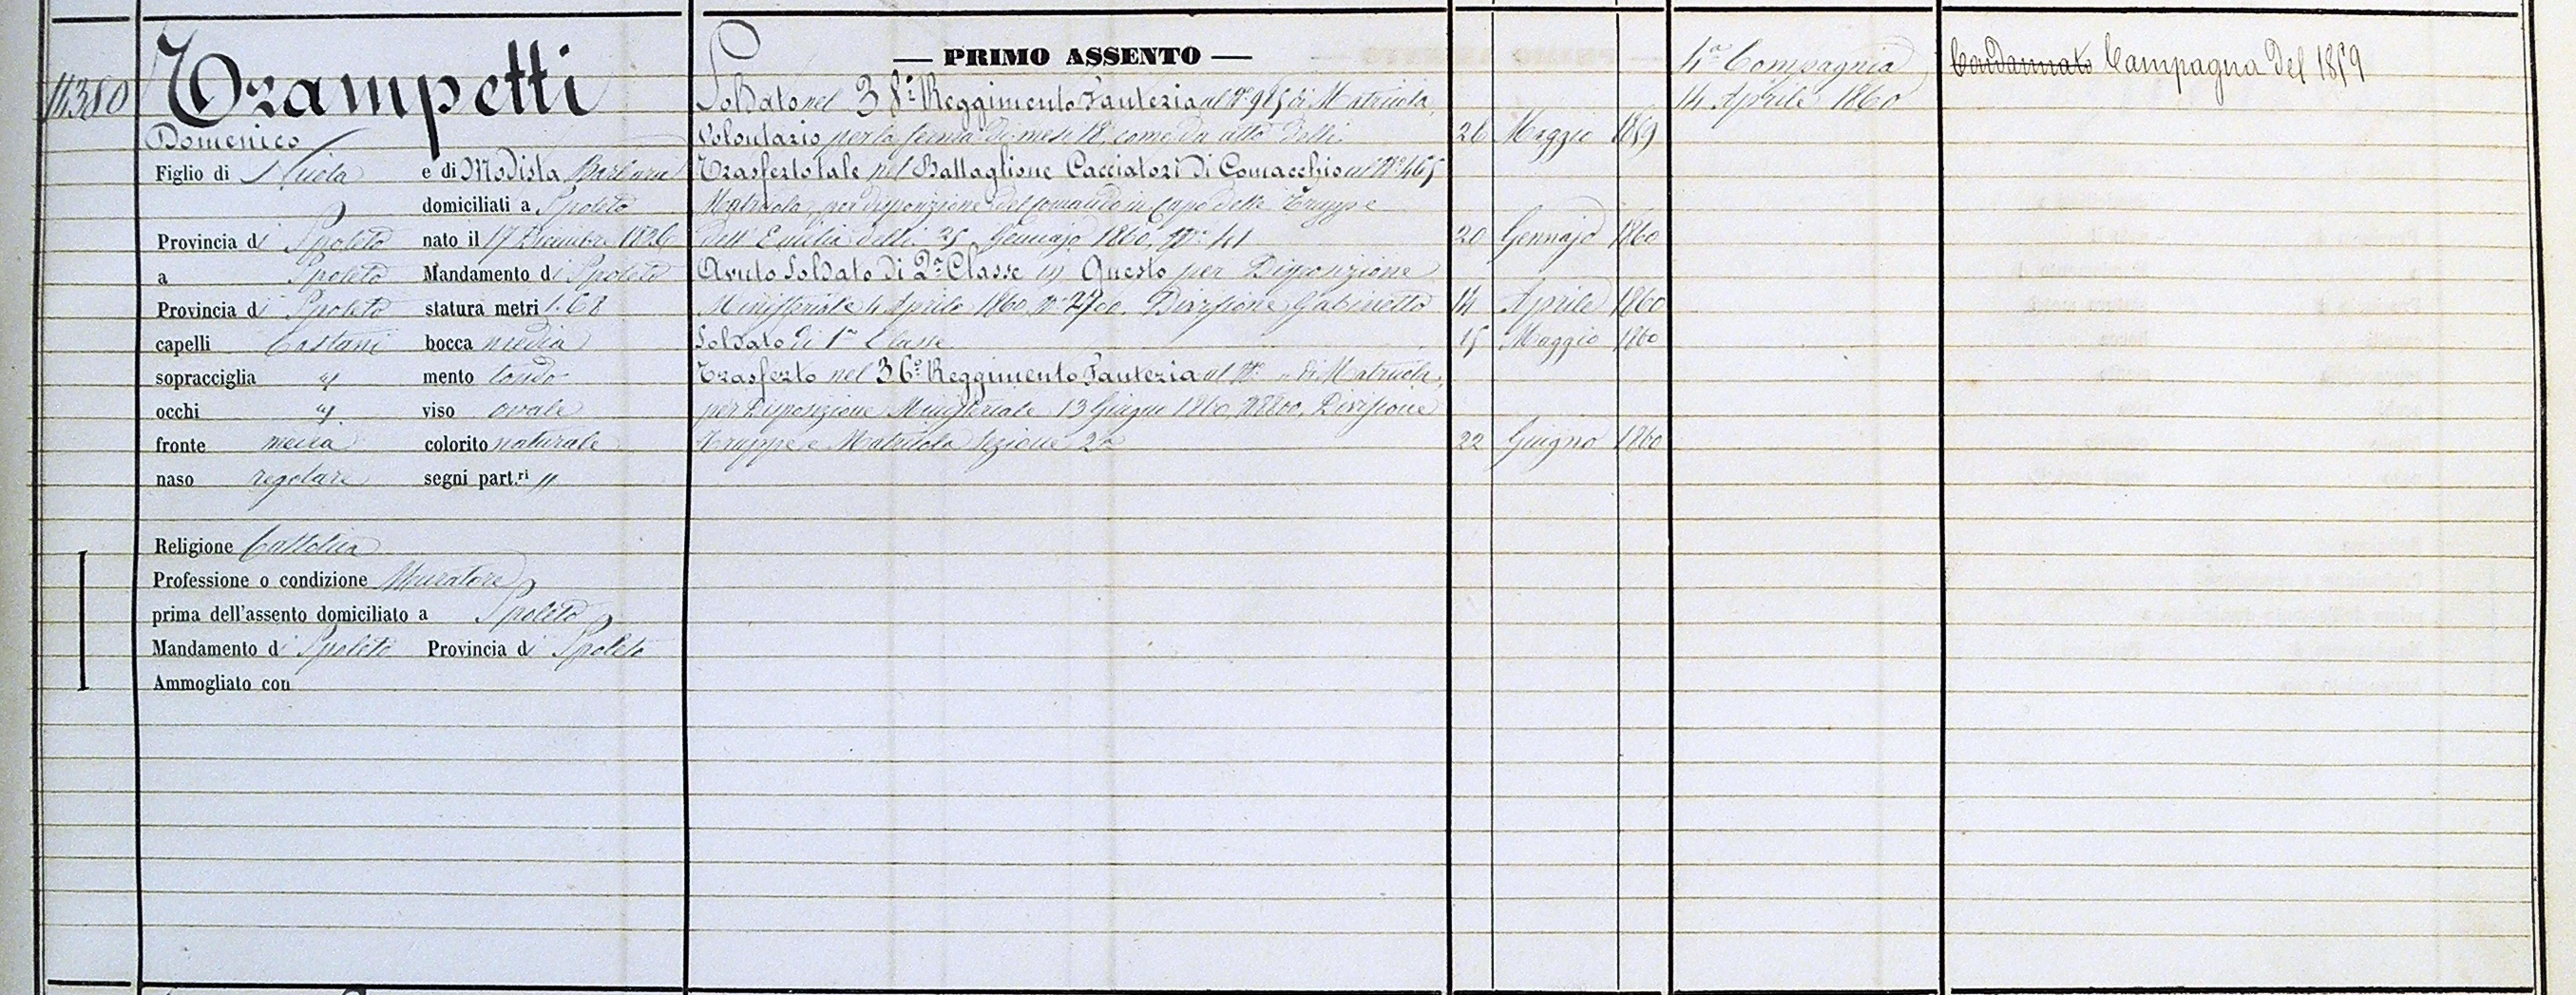 14380
Trampetti
Domenico
Figlio di Nicola e di Modista Barbara
domiciliati a Spoleto
Provincia di Spoleto nato il 17 Dicembre 1836
a Spoleto Mandamento di Spoleto
Provincia di Spoleto statura metri 1.68
capelli Castani bocca media
sopracciglia " mento tondo
occhi " viso ovale
fronte media colorito naturale
naso regolare segni part.ri "
Religione Cattolica
Professione o condizione Muratore
prima dell'assento domiciliato a Spoleto
Mandamento di Spoleto Provincia di Spoleto
Ammogliato con
— PRIMO ASSENTO —
Soldato nel 38º Reggimento Fanteria al Nº 985 di Matricola,
Volontario per la ferma di mesi 18, come da atto delli 26 Maggio 1859
Trasferto tale nel Battaglione Cacciatori di Comacchio al Nº 465
Matricola, per disposizione del Comando in Capo delle Truppe
dell'Emilia delli 25 Gennajo 1860, Nº 41 20 Gennajo 1860
Avuto Soldato di 2ª Classe in Questo per Disposizione
Ministeriale 4 Aprile 1860 Nº 2700. Divisione Gabinetto 14 Aprile 1860
Soldato di 1ª Classe 15 Maggio 1860
Trasferto nel 36º Reggimento Fanteria al Nº " di Matricola,
per Disposizione Ministeriale 13 Giugno 1860, Nº 8800, Divisione
Truppe e Matricola Sezione 2ª 22 Giugno 1860
4ª Compagnia
14 Aprile 1860
Condannato Campagna del 1859